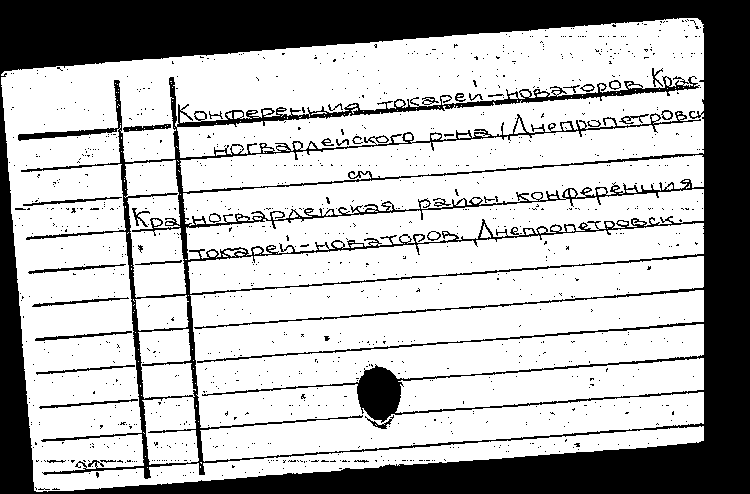 Конференция токарей-новаторов Крас-
ногвардейского р-на (Днепропетровск
см.
Красногвардейская район. конференция
токарей-новаторов. Днепропетровск.